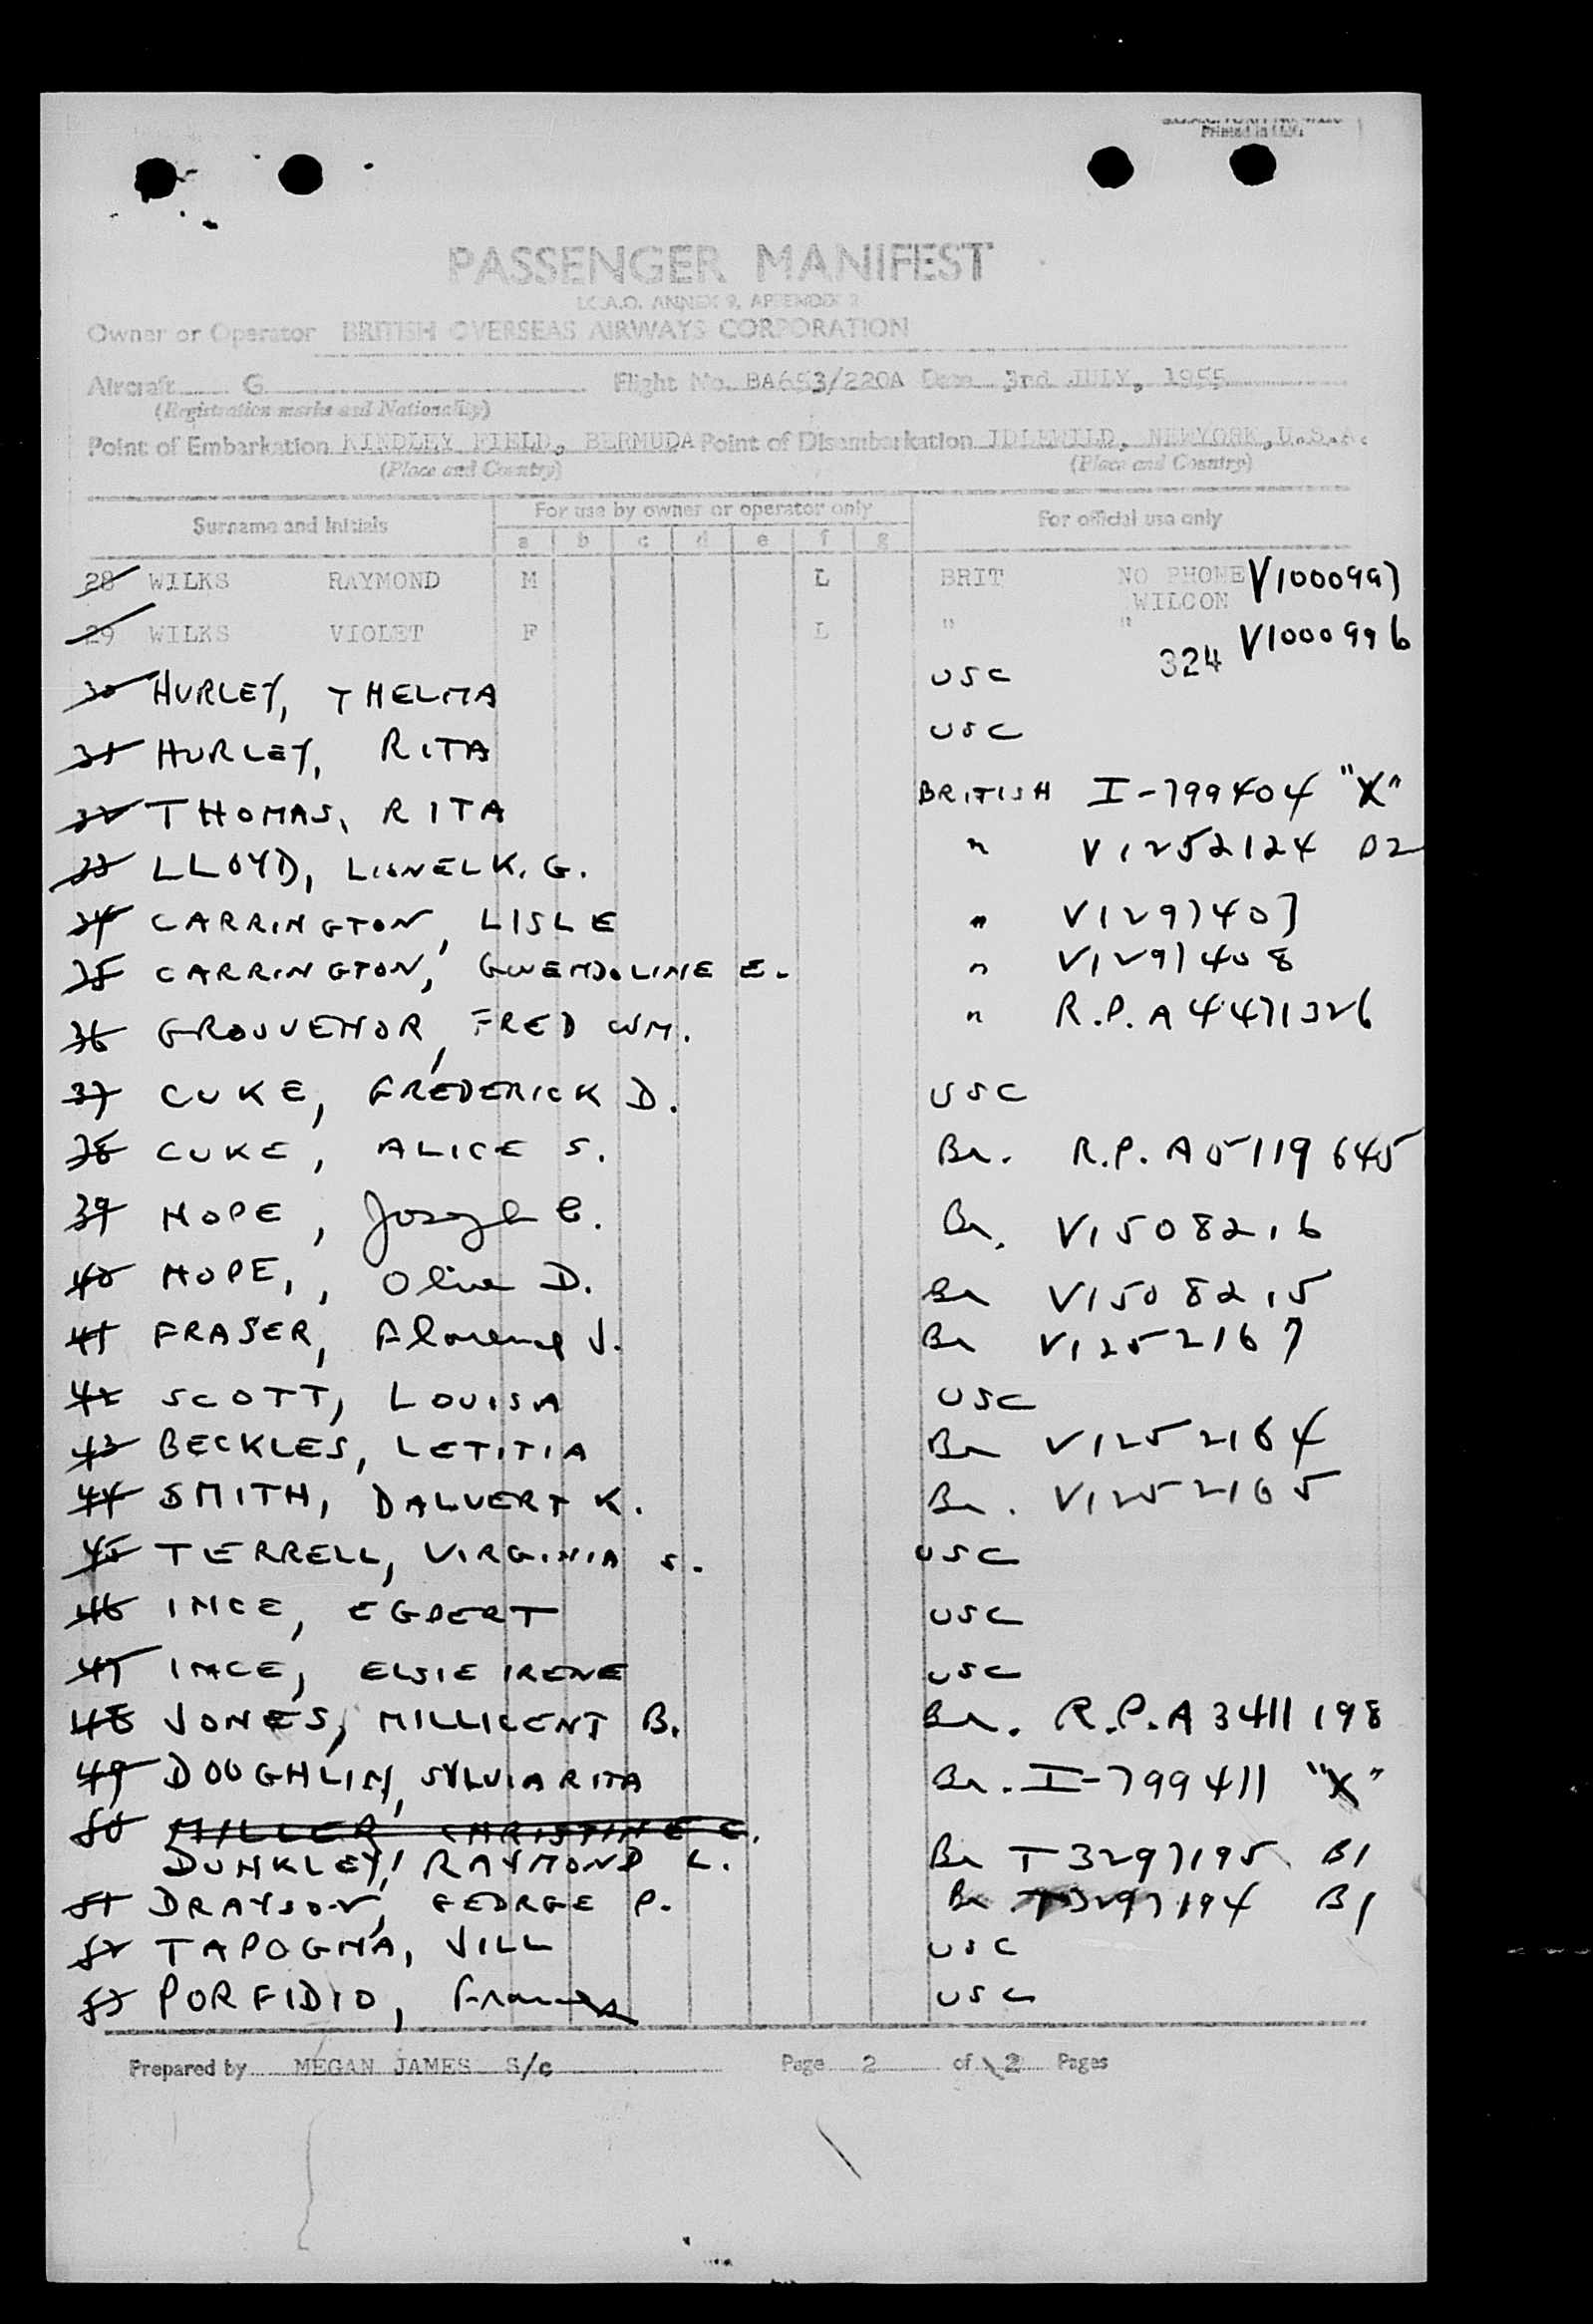 Printed in
PASSENGER MANIFEST
I.C.A.O. ANNEX 9, APPENDIX 2
Owner or Operator BRITISH OVERSEAS AIRWAYS CORPORATION
Aircraft G Flight No. BA653/220A Date 3rd JULY, 1955
(Registration marks and Nationality)
Point of Embarkation KINDLEY FIELD, BERMUDA Point of Disembarkation IDLEWILD, NEWYORK, U.S.A.
(Place and Country) (Place and Country)
Surname and Initials For use by owner or operator only For official use only
a b c d e f g
28 WILKS RAYMOND M L BRIT NO PHONE V1000997
WILCON
29 WILKS VIOLET F L " " V1000996
324
30 HURLEY, THELMA USC
31 HURLEY, RITA USC
32 THOMAS, RITA BRITISH I-799404 "X"
33 LLOYD, LIONEL K. G. " V1252124 B2
34 CARRINGTON, LISLE " V1297407
35 CARRINGTON, GWENDOLINE E. " V1297408
36 GROSVENOR, FRED WM. " R.P. A4471326
37 CUKE, FREDERICK D. USC
38 CUKE, ALICE S. Br. R.P. A5119645
39 HOPE, Joseph C. Br. V1508216
40 HOPE, , Olive D. Br V1508215
41 FRASER, Florence J. Br V1252167
42 SCOTT, LOUISA USC
43 BECKLES, LETITIA Br V1252164
44 SMITH, DALVERT K. Br. V1252165
45 TERRELL, VIRGINIA S. USC
46 INCE, EGBERT USC
47 INCE, ELSIE IRENE USC
48 JONES, MILLICENT B. Br. R.P. A3411198
49 DOUGHLIN, SYLVIA RITA Br. I-799411 "X"
50 MILLER CHRISTINE C.
DUNKLEY, RAYMOND L. Br T3297195 B1
51 DRAYSON, GEORGE P. Br T3297194 B1
52 TAPOGNA, JILL USC
53 PORFIDIO, Frances USC
Prepared by MEGAN JAMES S/c Page 2 of 2 Pages